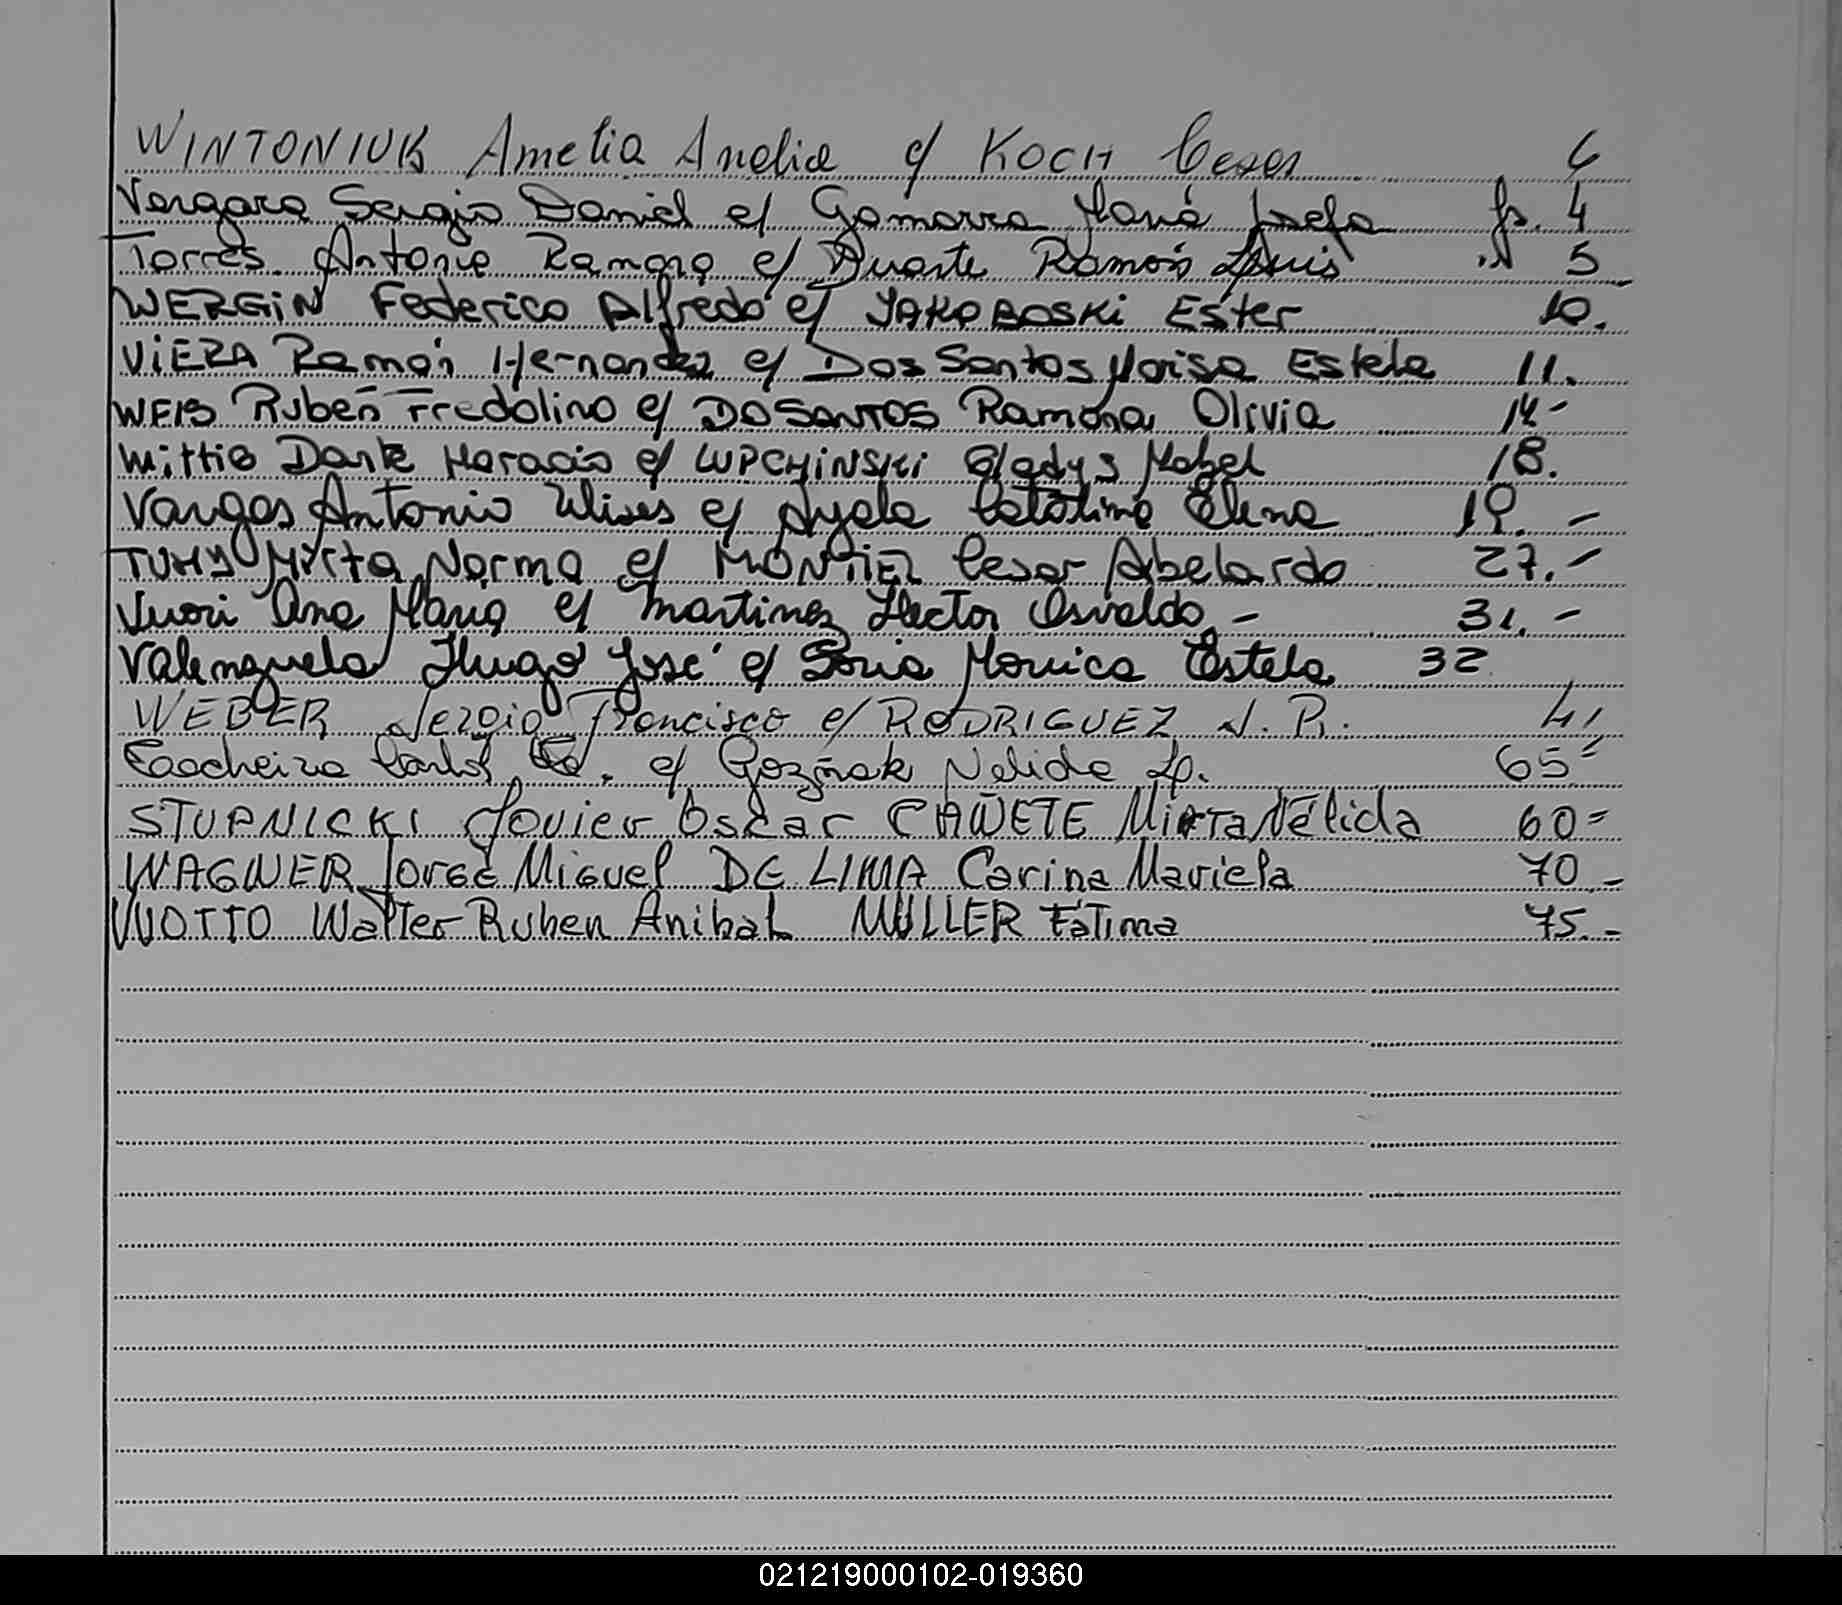 WINTONIUK Amelia Analia c/ KOCH Cesar 6
Vergara Sergio Daniel c/ Gamarra María Josefa fs. 4
Torres Antonia Ramona c/ Duarte Ramón Luis " 5
WERGiN Federico Alfredo c/ YAKOBOSKi Ester 10.
ViERA Ramón Hernandez c/ Dos Santos Marisa Estela 11.
WEIS Rubén Fredolino c/ DO SANTOS Ramona Olivia 14-
Wittis Dante Horacio c/ LUPCHiNSKi Gladys Mabel 18.
Vargas Antonio Ulises c/ Ayala Catalina Elena 19. -
TUMY Myrta Norma c/ MONTIEL Cesar Abelardo 27. -
Vuori Ana María c/ Martinez Hector Osvaldo - 31. -
Valenzuela Hugo José c/ Soria Monica Estela 32
WEBER Sergio Francisco c/ RODRIGUEZ N. R. 41
Carlos c/ Nelida 65-
STUPNICKI Javier Oscar CAÑETE Mirta Nélida 60=
WAGNER Jorge Miguel DE LIMA Carina Mariela 70.-
VUOTTO Walter Ruben Anibal MULLER Fátima 75.-
021219000102-019360